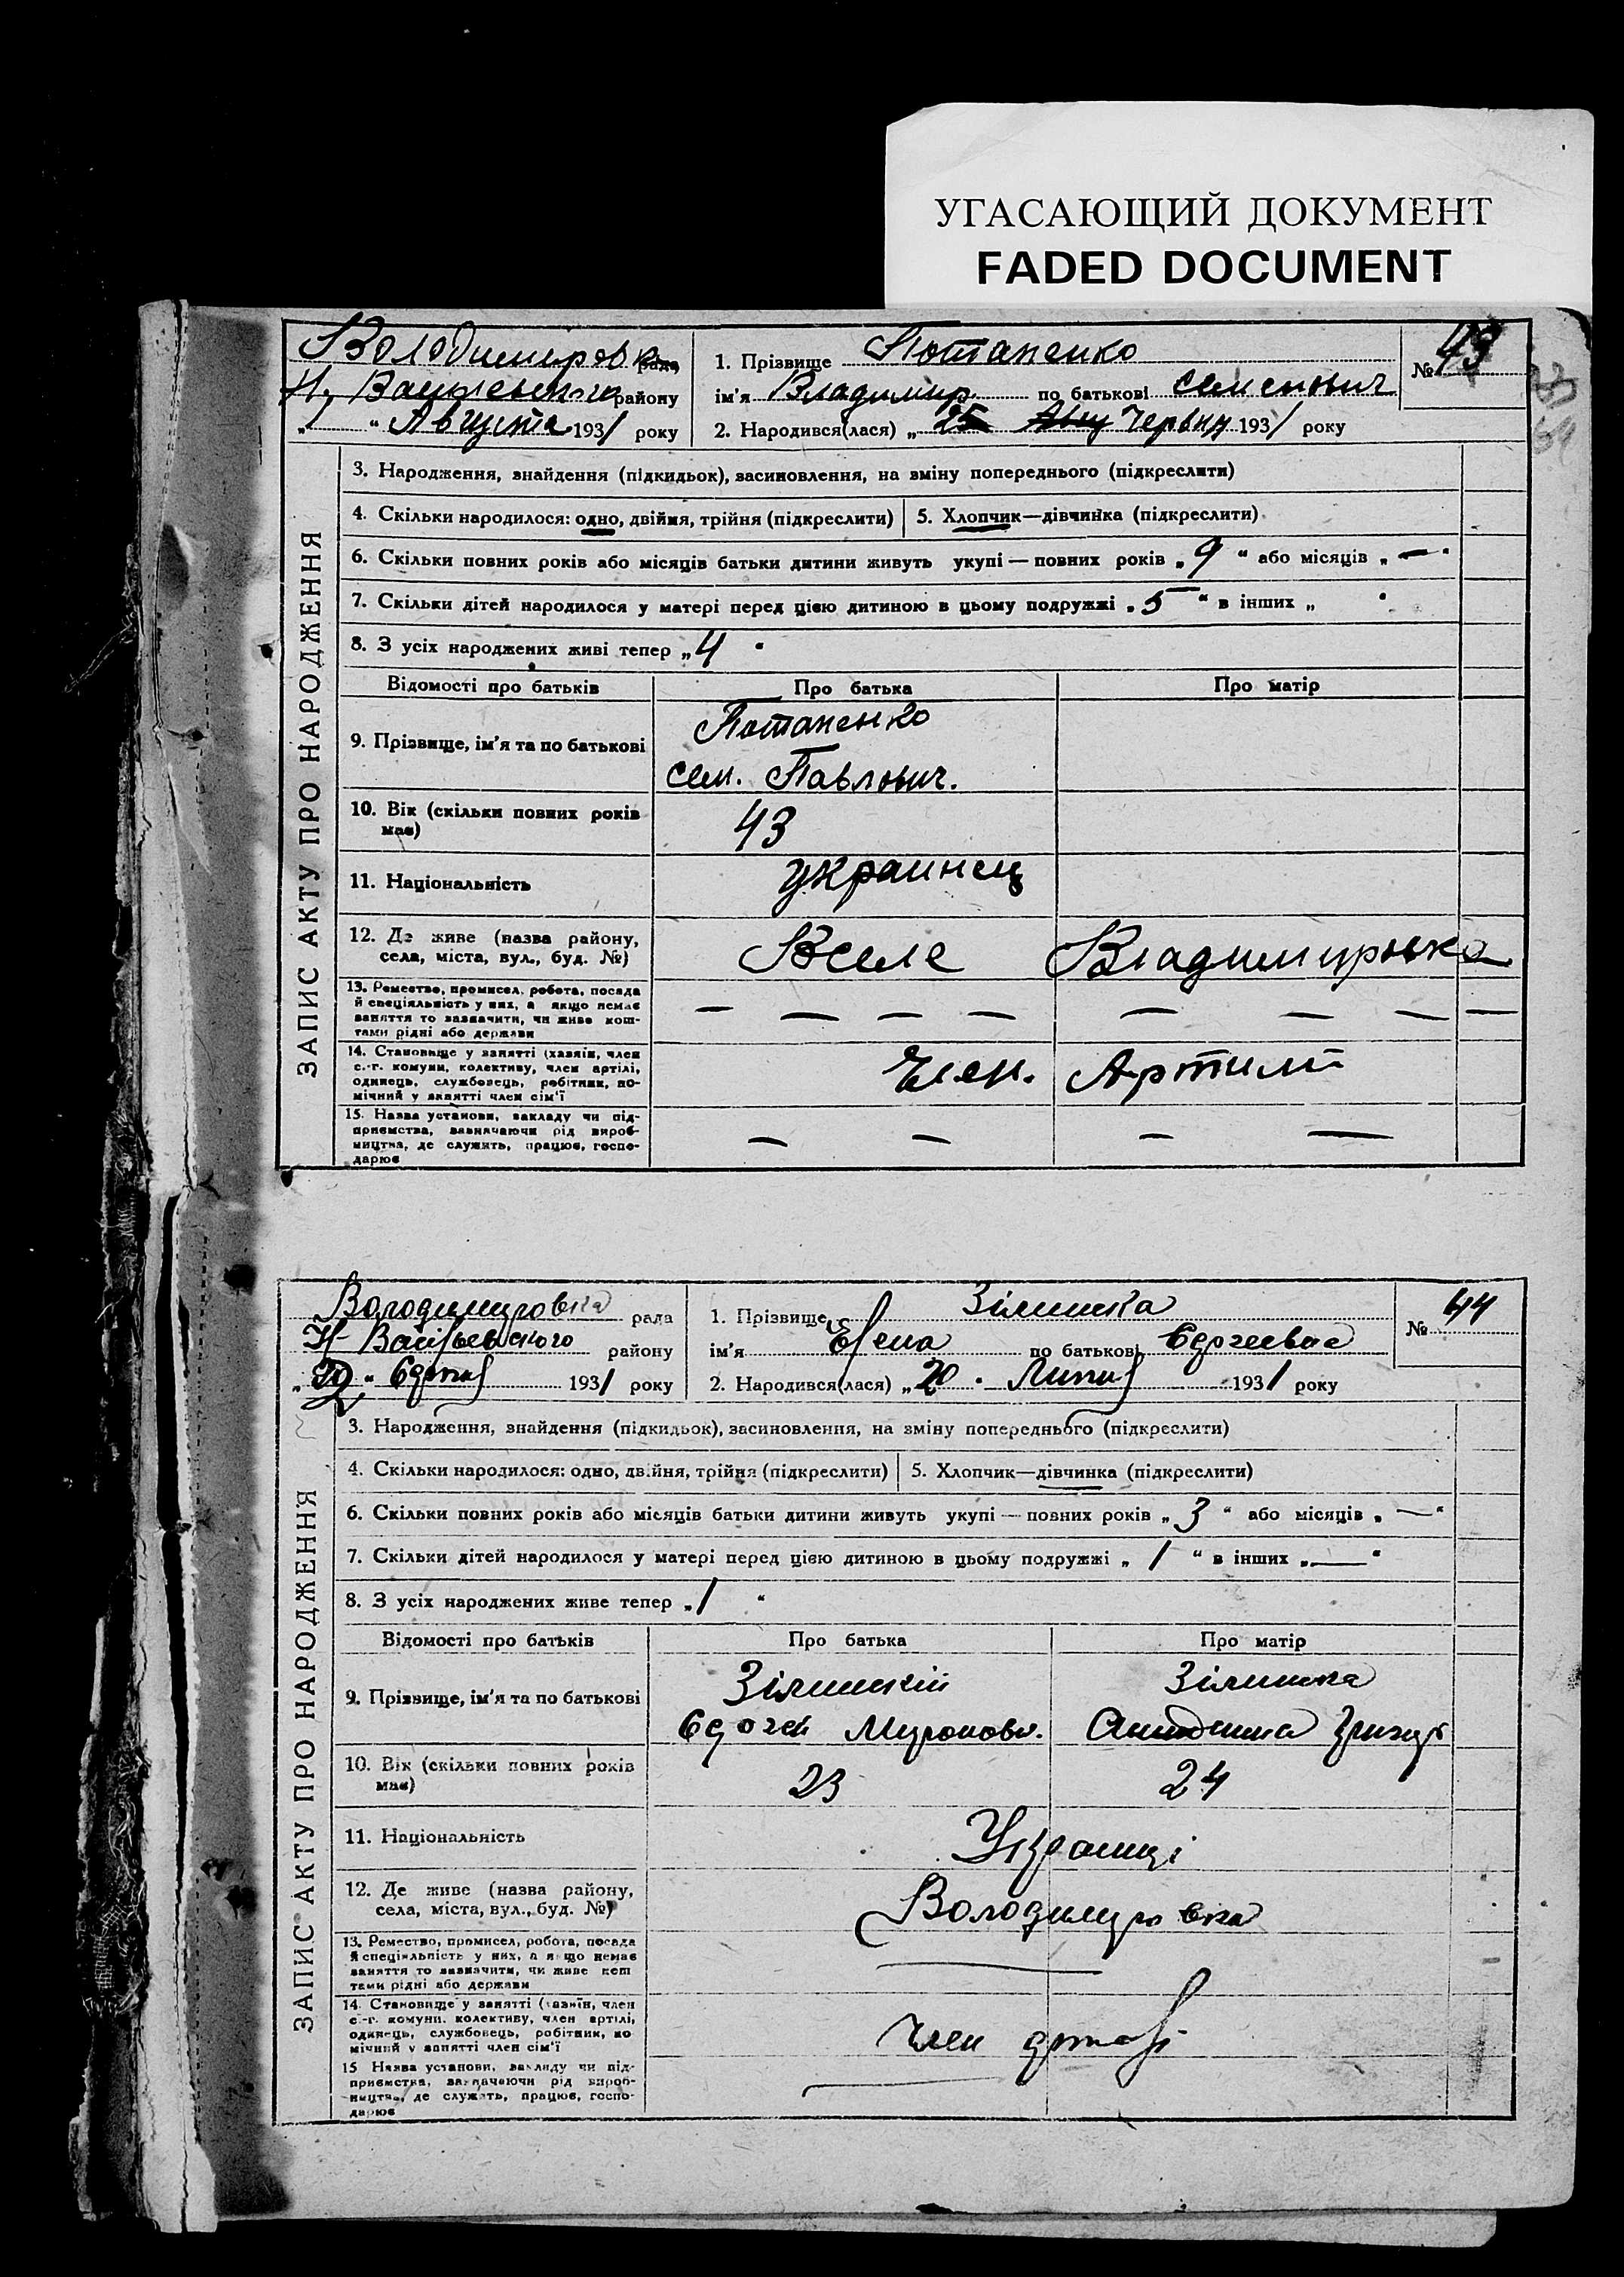 УГАСАЮЩИЙ ДОКУМЕНТ
FADED DOCUMENT
Володимировка рада
району
„ “ Августа 1931 року
1. Прізвище Потапенко
№ 43
ім'я Владимир по батькові Семенович
2. Народився(лася) „ 25 Червня 1931 року
ЗАПИС АКТУ ПРО НАРОДЖЕННЯ
3. Народження, знайдення (підкидьок), засиновлення, на зміну попереднього (підкреслити)
4. Скільки народилося: одно, двійня, трійня (підкреслити)
5. Хлопчик—дівчинка (підкреслити)
6. Скільки повних років або місяців батьки дитини живуть укупі — повних років „ 9 “ або місяців „ — “
7. Скільки дітей народилося у матері перед цією дитиною в цьому подружжі „ 5 “ в інших „
8. З усіх народжених живі тепер „ 4 “
Відомості про батьків
Про батька
Про матір
9. Прізвище, ім'я та по батькові
Потапенко
Сем. Павлович.
10. Вік (скільки повних років має)
43
11. Національність
украинец
12. Де живе (назва району,
села, міста, вул., буд. №)
В селе Владимировка
13. Ремество, промисел, робота, посада
й спеціяльність у них, а якщо немає
заняття то зазначити, чи живе кош-
тами рідні або держави
— — — — — — — —
14. Становище у занятті (хазяїн, член
с.-г. комуни, колективу, член артілі,
одинець, службовець, робітник, по-
мічний у занятті член сім'ї
Член. Артили
15. Назва установи, закладу чи під-
приємства, зазначаючи рід вироб-
ництва, де служить, працює, госпо-
дарює
— — — —
Володимировка рада
району
1931 року
1. Прізвище Зілинска
№ 44
ім'я Елена по батькові
2. Народився(лася) „ 20 . Липня 1931 року
ЗАПИС АКТУ ПРО НАРОДЖЕННЯ
3. Народження, знайдення (підкидьок), засиновлення, на зміну попереднього (підкреслити)
4. Скільки народилося: одно, двійня, трійня (підкреслити)
5. Хлопчик—дівчинка (підкреслити)
6. Скільки повних років або місяців батьки дитини живуть укупі — повних років „ 3 “ або місяців „ — “
7. Скільки дітей народилося у матері перед цією дитиною в цьому подружжі „ 1 “ в інших „ — “
8. З усіх народжених живе тепер „ 1 “
Відомості про батьків
Про батька
Про матір
9. Прізвище, ім'я та по батькові
Зілинский
Зілинска
10. Вік (скільки повних років має)
23
24
11. Національність
Українці
12. Де живе (назва району,
села, міста, вул., буд. №)
Володимировка
13. Ремество, промисел, робота, посада
й спеціяльність у них, а якщо немає
заняття то зазначити, чи живе кош
тами рідні або держави
14. Становище у занятті (хазяїн, член
с.-г. комуни, колективу, член артілі,
одинець, службовець, робітник, по
мічний у занятті член сім'ї
член артілі
15 Назва установи, закладу чи під-
приємства, зазначаючи рід вироб-
ництва, де служить, працює, госпо-
дарює